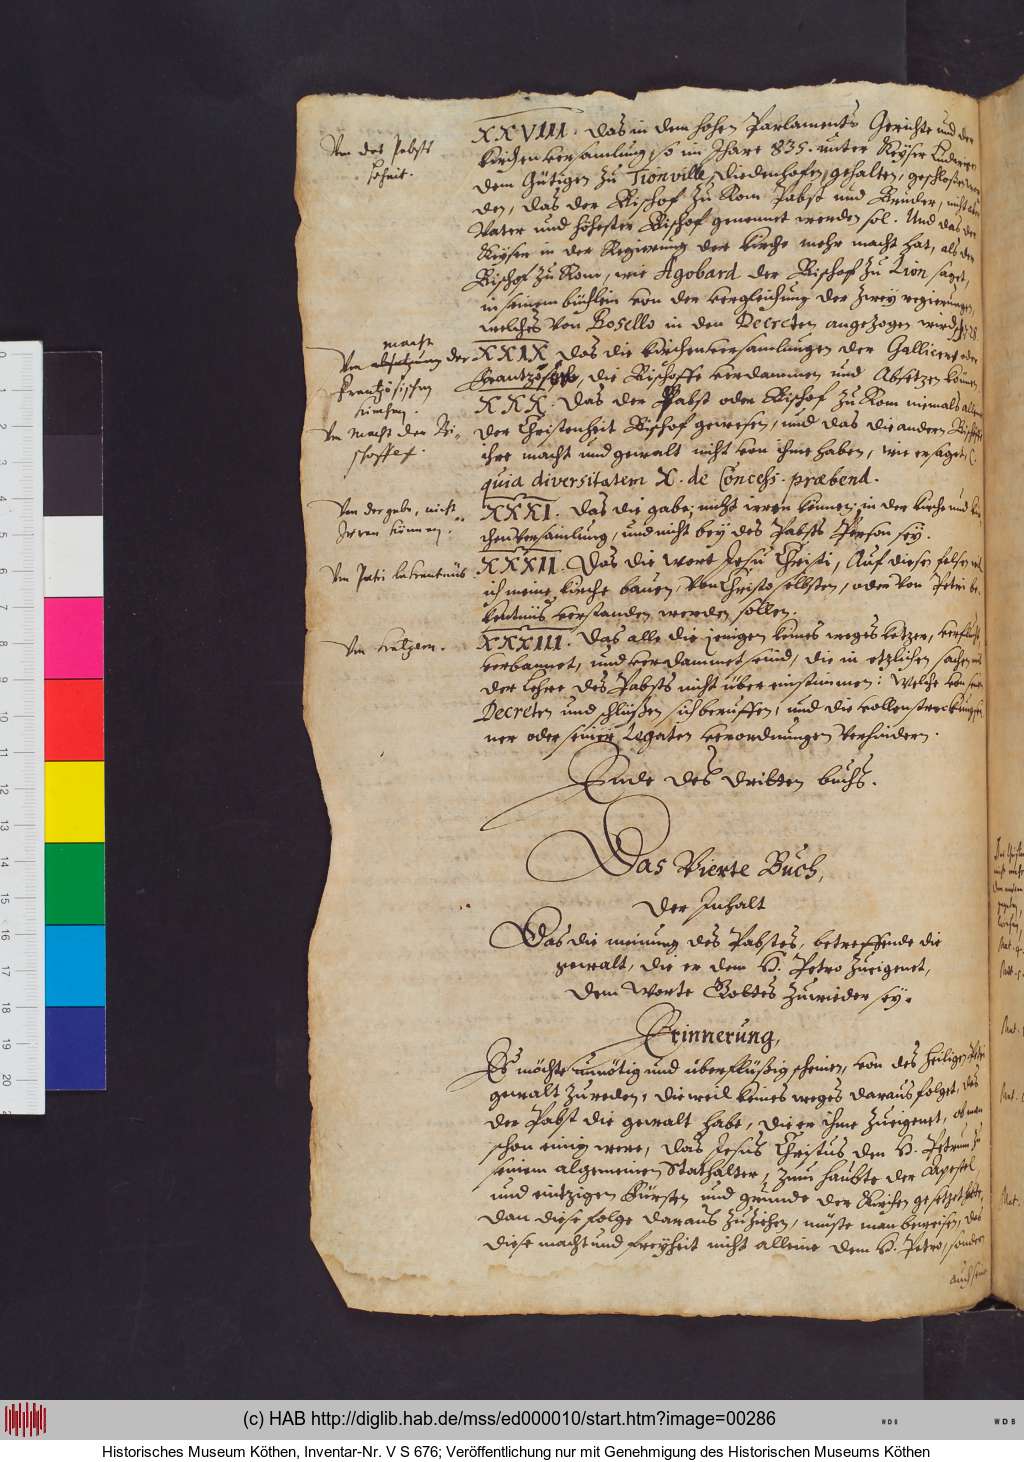 Von des Pabsts
hoheit.
XXVIII. Das in dem hohen Parlaments Gerichte und der
kirchenversamlung, so im Jhare 835. unter Keyser Ludewig
dem Gütigen zu Tionville, Diedenhofen, gehalten, geschloßen wor-
den, das der Bischof zu Rom Pabst und Bruder, nicht aber
Vater und höhester Bischof genennet werden sol. Und das der
Keyser in der Regierung der kirche mehr macht hat, als der
Bischof zu Rom, wie Agobard der Bischof zu Lion saget,
in seinem büchlein von der vergleichung der zwey regierungen,
welches von Bosello in den Decreten angezogen wird
macht
Von absetzung der
Frantzösischen
kirchen.
XXIX. Das die kirchenversamlungen der Gallicer oder
Frantzösische, die Bischoffe verdammen und Absetzen können
Von macht der Bi-
schoffe.
XXX. Das der Pabst oder Bischof zu Rom niemals allgemeiner
der Christenheit Bischof gewesen, und das die andern Bischöfe
ihre macht und gewalt nicht von ihme haben, wie er saget, C.
quia diversitatem X. de Concess. præbend.
Von der gabe, nicht
Irren können.
XXXI. Das die gabe, nicht irren können, in der kirche und kir-
chenversamlung, und nicht bey des Pabsts Person sey.
Von Petri bekentnüs
XXXII. Das die wort Jesu Christi, Auf diesen felsen wil
ich meine kirche bauen, von Christo selbsten, oder von Petri be-
kentnüs verstanden werden sollen.
Von ketzern.
XXXIII. Das alle die jenigen keines weges ketzer, verflucht,
verbannet, und verdammet seind, die in etzlichen sachen mit
der Lehre des Pabsts nicht über einstimmen: Welche von seinen
Decreten und schlüßen sich beruffen, und die vollenstreckung sei-
ner oder seiner Legaten verordnungen verhindern.
Ende des dritten buchs.
Das Vierte Buch,
Der Inhalt
Das die meinung des Pabstes, betreffende die
gewalt, die er dem H. Petro zueignet,
dem Worte Gottes zuwieder sey.
Erinnerung,
Es möchte unnötig und überflüßig scheinen, von des Heiligen Petri
gewalt zureden, dieweil keines weges daraus folget, das
der Pabst die gewalt habe, die er ihme zueignet, ob man
schon einig were, das Jesus Christus den H. Petrum zu
seinem algemeinen Stathalter, zum haubte der Apostel,
und eintzigen Fürsten und grunde der Kirchen gesetzet hette,
dan diese folge daraus zuziehen, müste man beweisen, das
diese macht und freyheit nicht alleine dem H. Petro, sondern
auch seinen
(c) HAB http://diglib.hab.de/mss/ed000010/start.htm?image=00286
Historisches Museum Köthen, Inventar-Nr. V S 676; Veröffentlichung nur mit Genehmigung des Historischen Museums Köthen